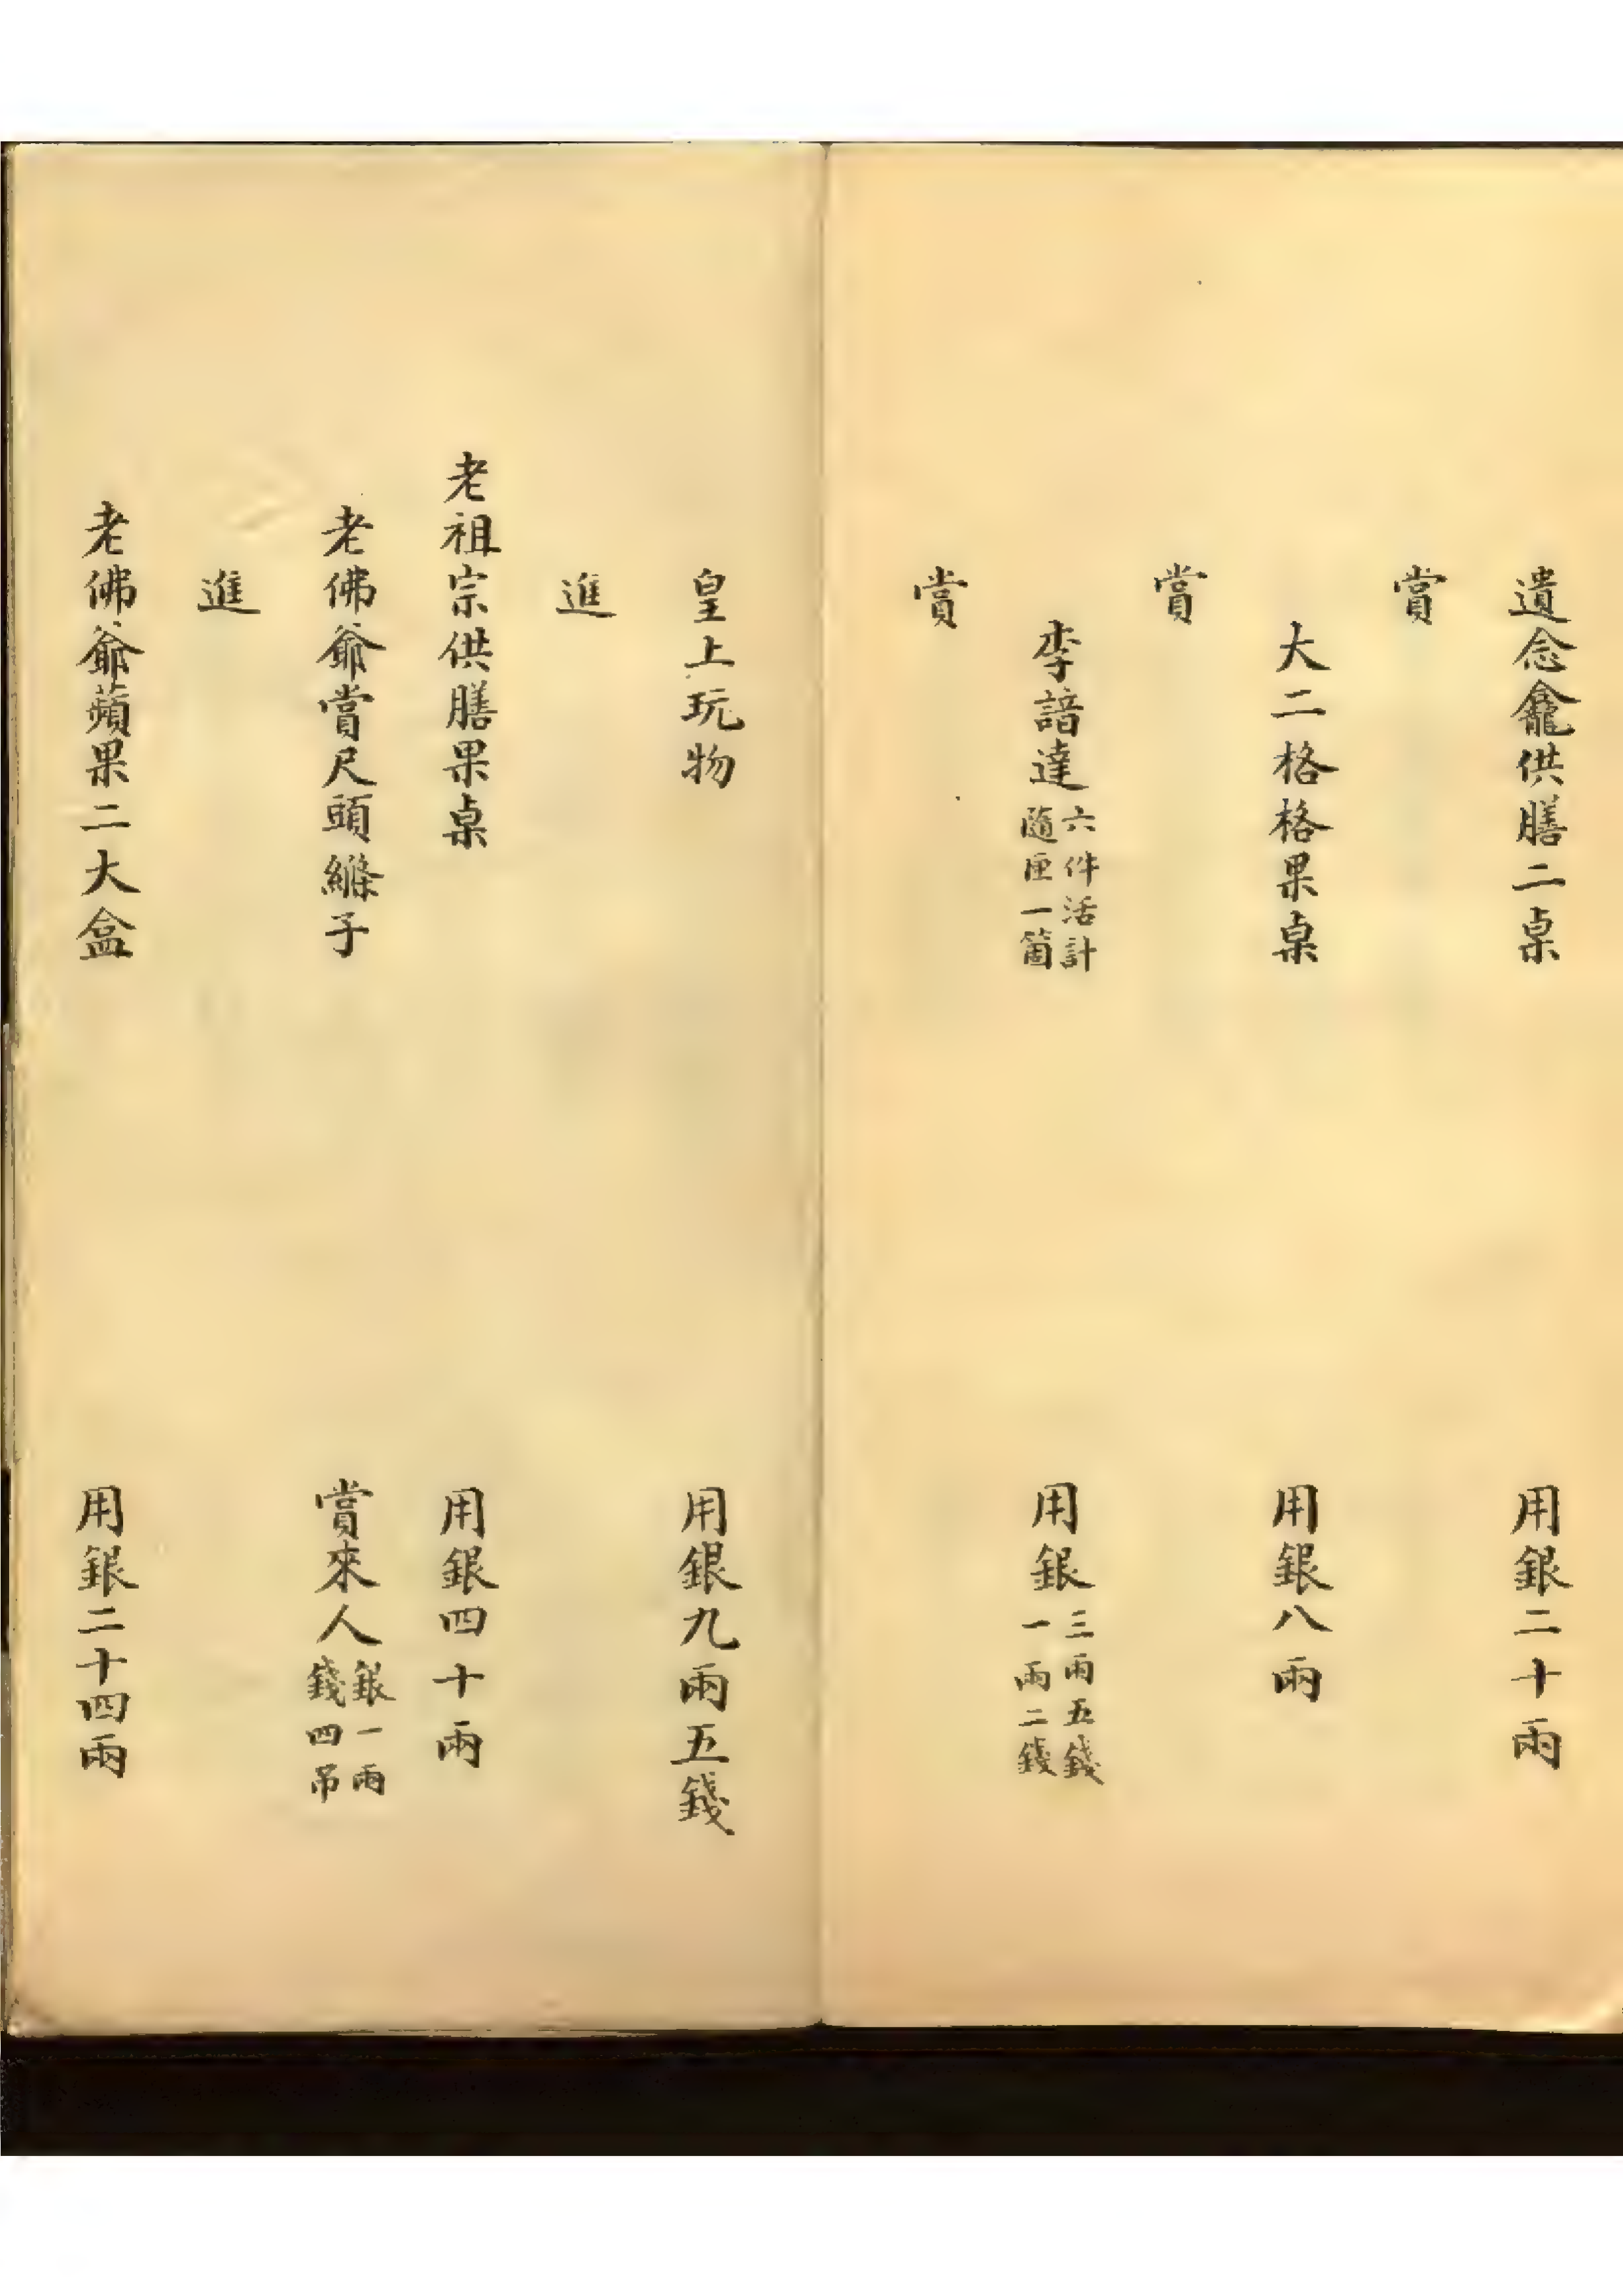 遺念龕供膳二桌　用銀二十兩
賞
大二格格果桌　用銀八兩
賞
李諳達
六件活計
隨匣一箇
用銀
三兩五錢
一兩二錢
賞
皇上玩物　用銀九兩五錢
進
老祖宗供膳果桌　用銀四十兩
老佛爺賞尺頭縧子　賞來人
銀一兩
錢四吊
進
老佛爺蘋果二大盒　用銀二十四兩